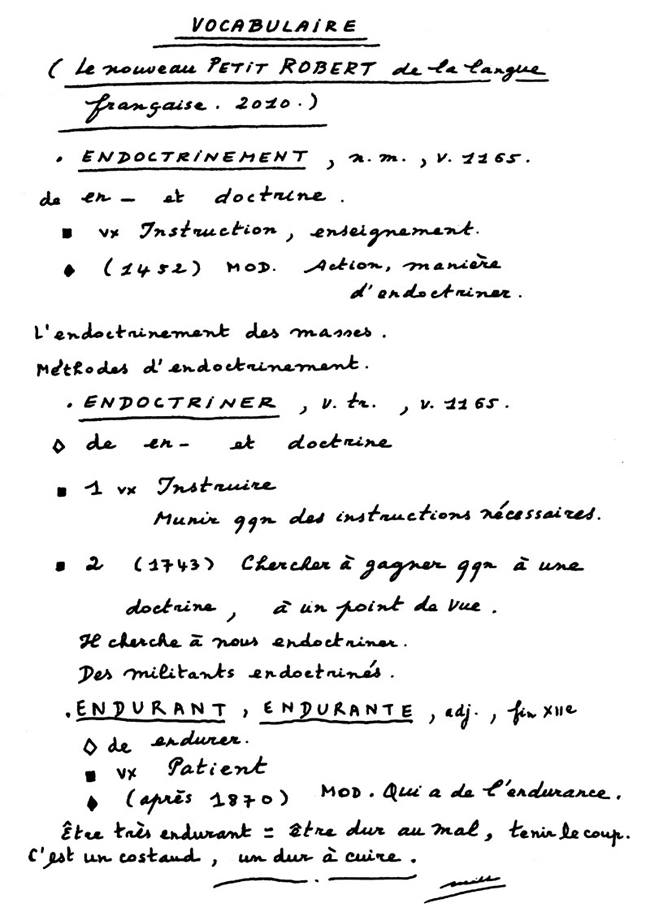 VOCABULAIRE
( Le nouveau PETIT ROBERT de la langue
française. 2010.)
. ENDOCTRINEMENT, n.m., v. 1165.
de en- et doctrine.
■ vx Instruction, enseignement.
♦ (1452) MOD. Action, manière
d'endoctriner.
L'endoctrinement des masses.
Méthodes d'endoctrinement.
. ENDOCTRINER, v. tr., v. 1165.
◊ de en- et doctrine
■ 1 vx Instruire
Munir qqn des instructions nécessaires.
■ 2 (1743) Chercher à gagner qqn à une
doctrine, à un point de vue.
Il cherche à nous endoctriner.
Des militants endoctrinés.
. ENDURANT, ENDURANTE, adj., fin XIIe
◊ de endurer.
■ vx Patient
♦ (après 1870) MOD. Qui a de l'endurance.
Être très endurant = être dur au mal, tenir le coup.
C'est un costaud, un dur à cuire.